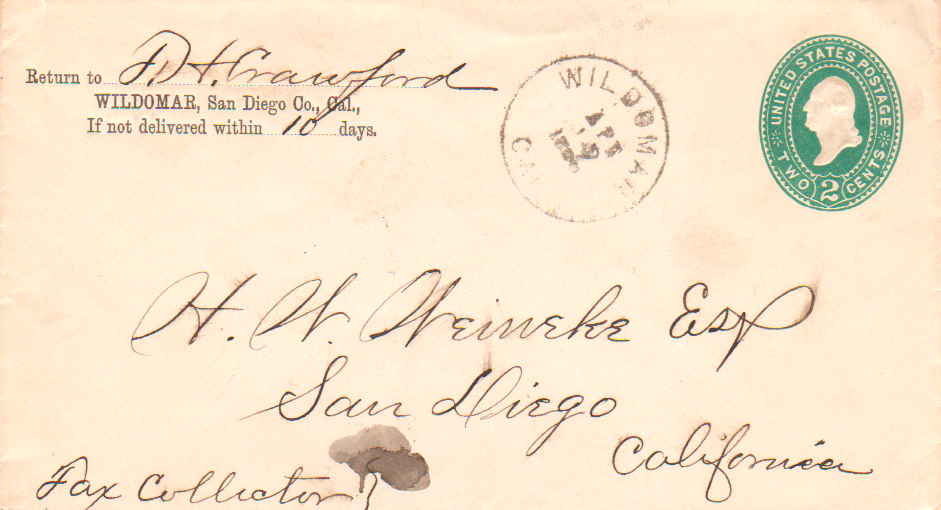 Return to F. H. Crawford
WILDOMAR, San Diego Co., Cal.,
If not delivered within 10 days.
WILDOMAR CAL
APR
UNITED STATES POSTAGE
TWO 2 CENTS
H. W. Weineke Esq
San Diego
California
Tax Collector